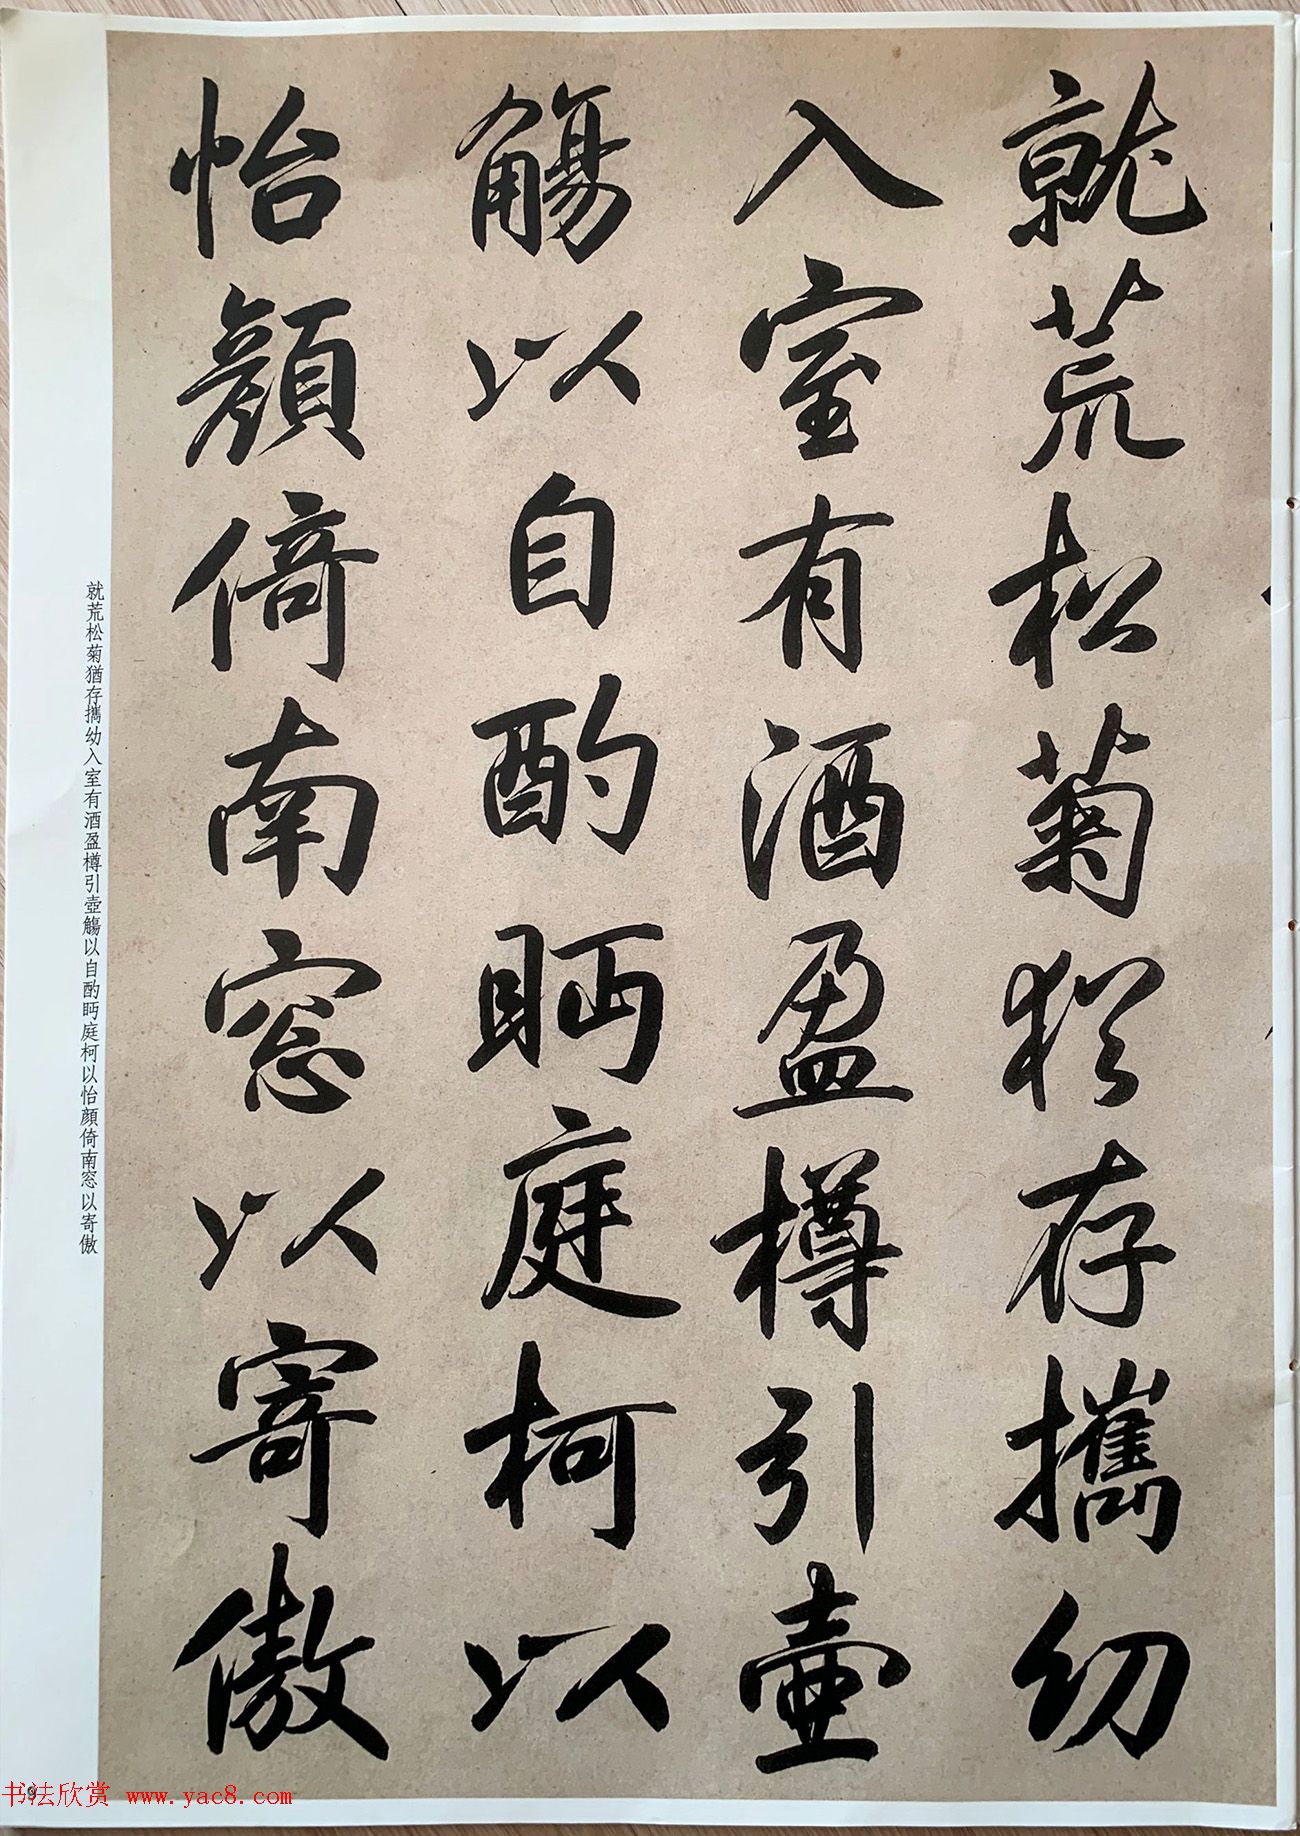 就荒松菊猶存攜幼
入室有酒盈樽引壺
觴以自酌眄庭柯以
怡顏倚南窓以寄傲
就荒松菊猶存攜幼入室有酒盈樽引壺觴以自酌眄庭柯以怡顏倚南窓以寄傲
9
书法欣赏 www.yac8.com